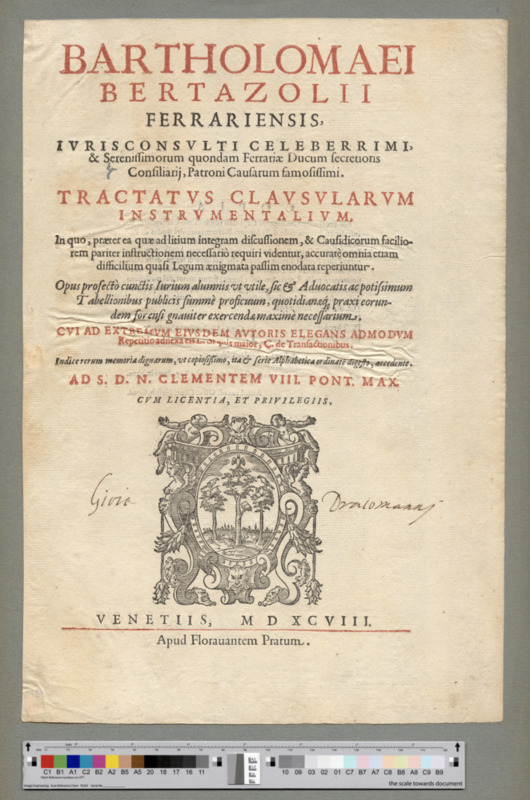 BARTHOLOMAEI
BERTAZOLII
FERRARIENSIS,
IVRISCONSVLTI CELEBERRIMI,
& Serenissimorum quondam Ferrariæ Ducum secretioris
Consiliarij, Patroni Causarum famosissimi.
TRACTATVS CLAVSVLARVM
INSTRVMENTALIVM,
In quo, præter ea quæ ad litium integram discussionem, & Causidicorum facilio-
rem pariter instructionem necessariò requiri videntur, accuratè omnia etiam
difficilium quasi Legum ænigmata passim enodata reperiuntur.
Opus profectò cunctis Iurium alumnis vt vtile, sic & Aduocatis ac potissimum
Tabellionibus publicis summè proficuum, quotidianæq́; praxi eorun-
dem for ensi gnauiter exercenda maximè necessarium.
CVI AD EXTREMVM EIVSDEM AVTORIS ELEGANS ADMODVM
Repetitio adnexa est maior, C. de Transactionibus.
Indice rerum memoria dignarum, vt copiosissimo, ita & serie Alphabetica ordinate digesto, accedente.
AD S. D. N. CLEMENTEM VIII. PONT. MAX.
CVM LICENTIA, ET PRIVILEGIIS.
Gioie
VENETIIS, M D XCVIII.
Apud Florauantem Pratum.
C1 B1 A1 C2 B2 A2 B5 A5 20 18 17 16 11
10 09 03 02 01 C7 B7 A7 C8 B8 A8 C9 B9
the scale towards document